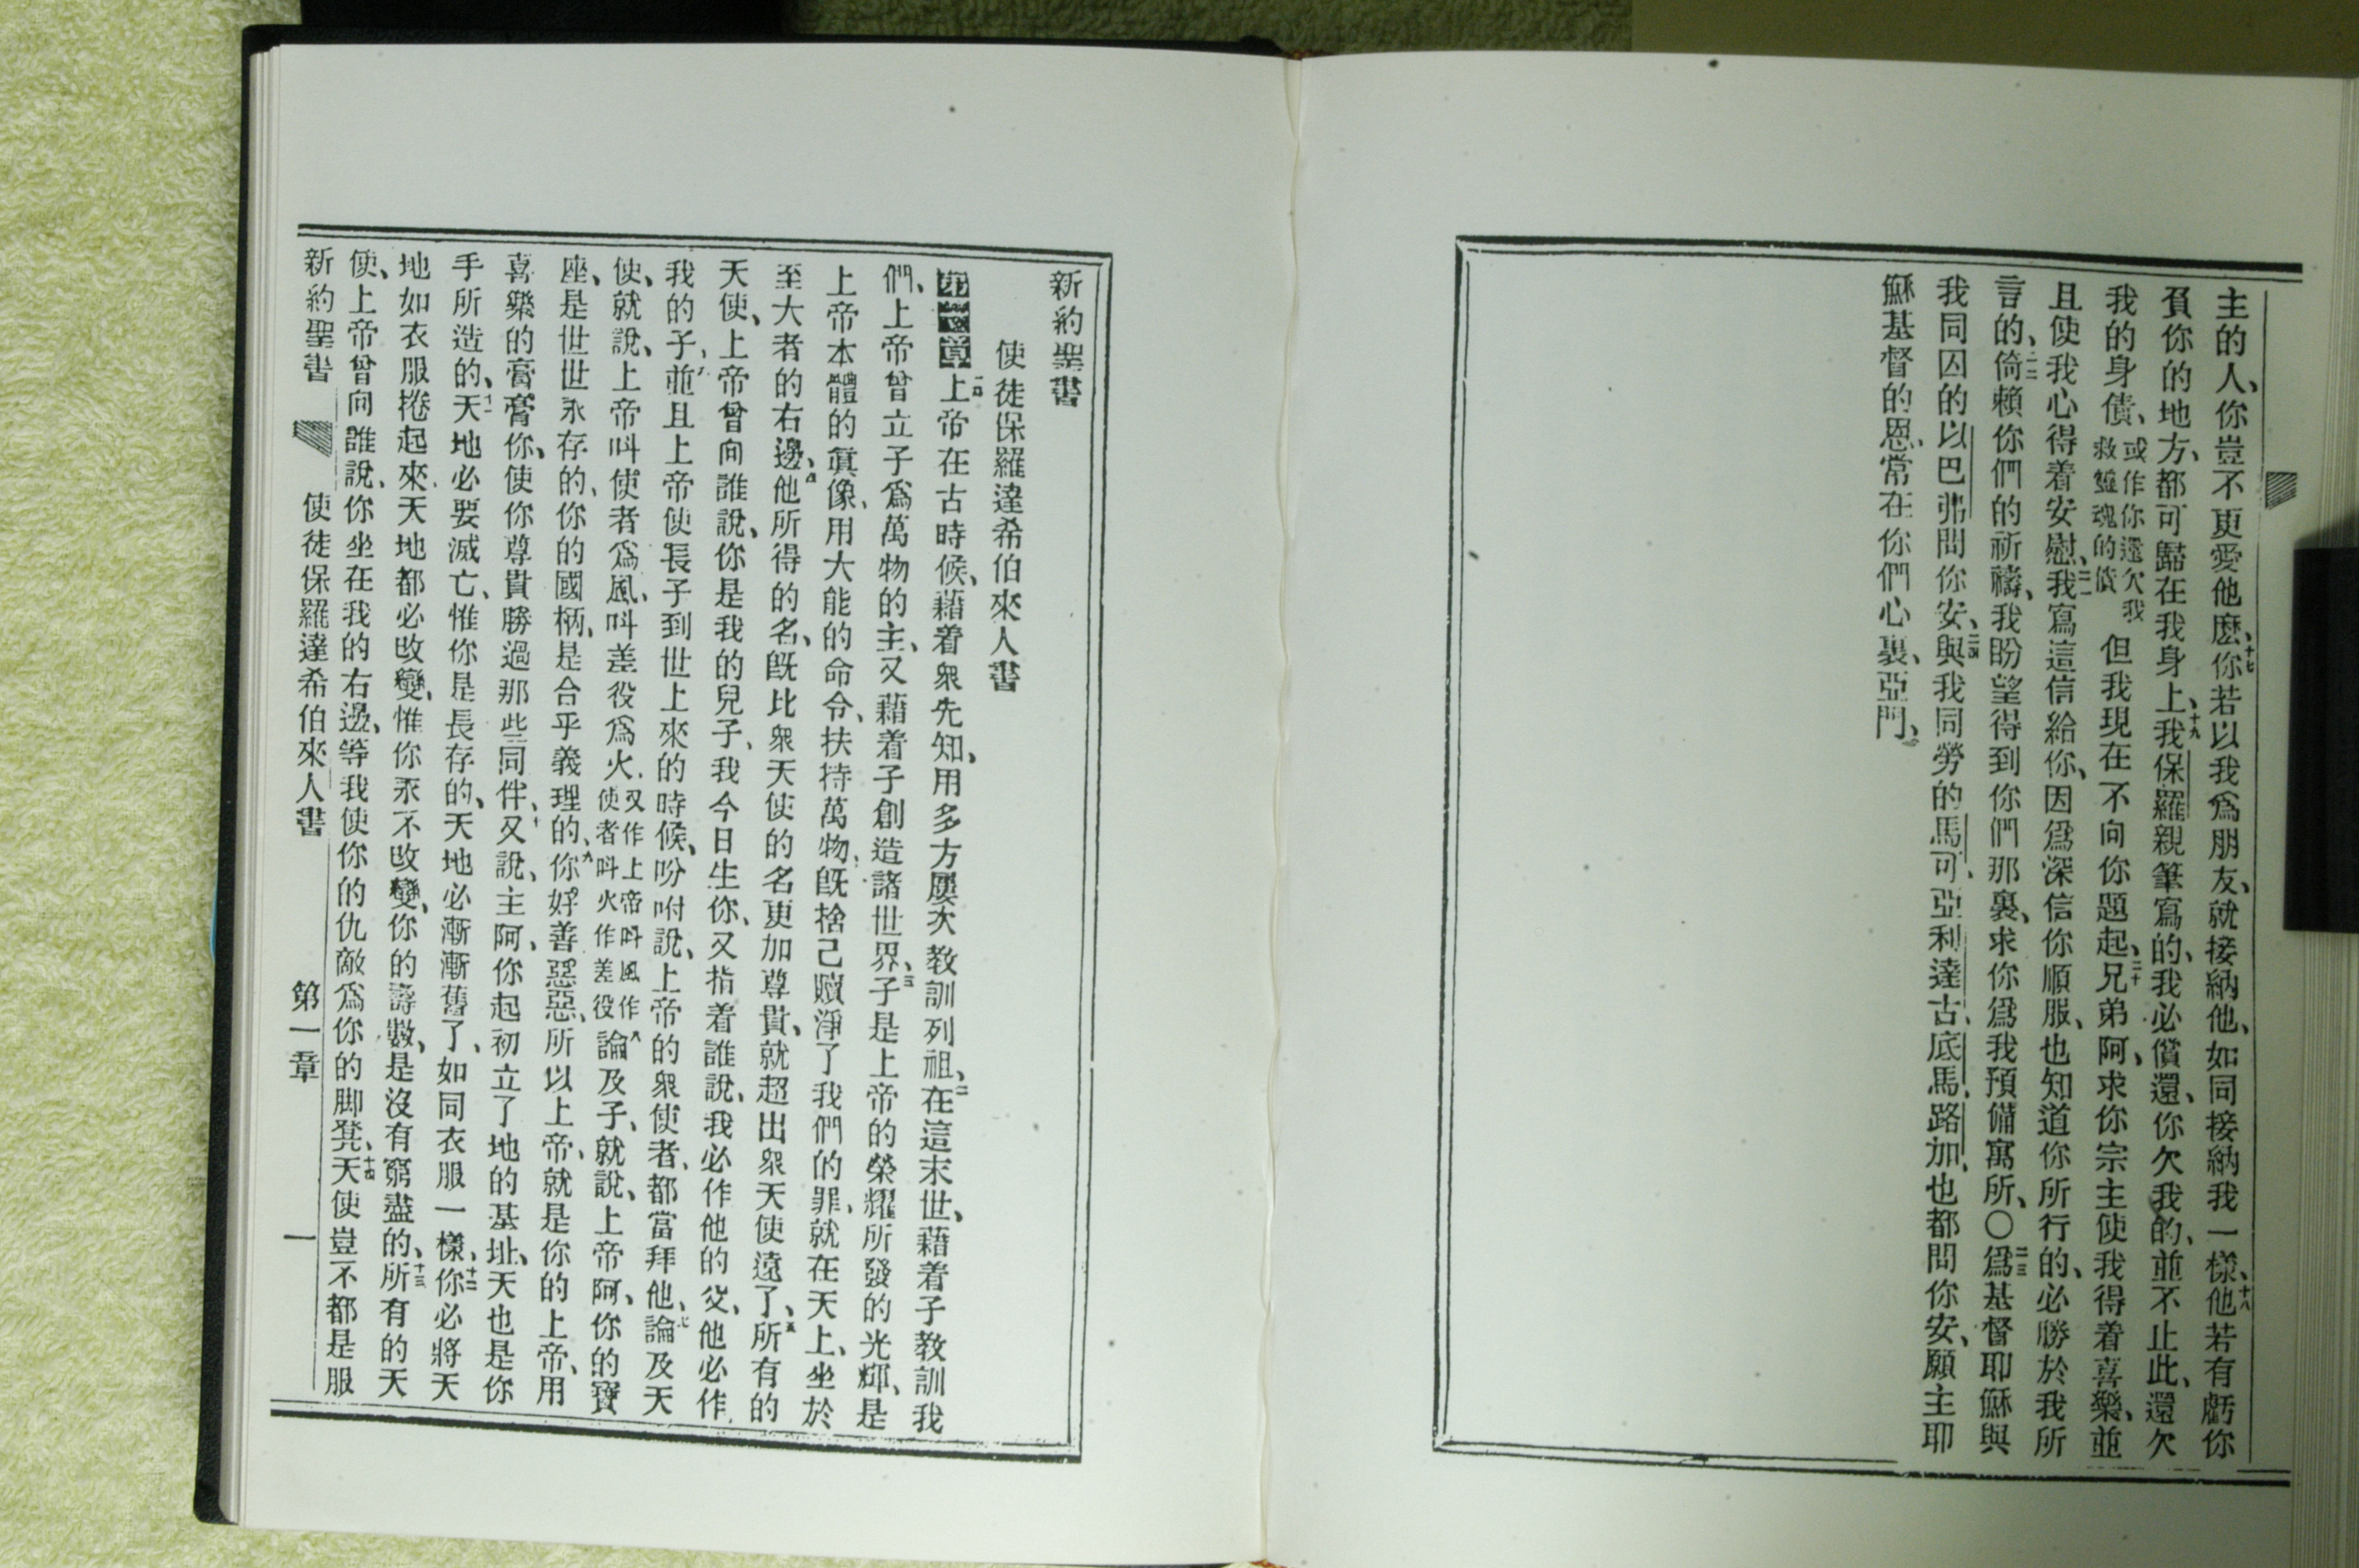 主的人、你豈不更愛他麽、十七你若以我爲朋友、就接納他、如同接納我一樣、十八他若有虧你
負你的地方、都可歸在我身上、十九我保羅親筆寫的、我必償還、你欠我的、並不止此、還欠
我的身債、或作你還欠我救靈魂的債但我現在不向你題起、二十兄弟阿、求你宗主使我得着喜樂、並
且使我心得着安慰、二一我寫這信給你、因爲深信你順服、也知道你所行的、必勝於我所
言的、二二倚賴你們的祈禱、我盼望得到你們那裏、求你爲我預備寓所、〇二三爲基督耶穌與
我同囚的以巴弗問你安、二四與我同勞的馬可、亞利達古、底馬、路加、也都問你安、願主耶
穌基督的恩、常在你們心裏、亞門、
新約聖書
使徒保羅達希伯來人書
第一章 上帝在古時候、藉着衆先知、用多方屢次教訓列祖、二在這末世、藉着子教訓我
們、上帝曾立子爲萬物的主、又藉着子創造諸世界、三子是上帝的榮耀所發的光輝、是
上帝本體的眞像、用大能的命令、扶持萬物、旣捨己贖淨了我們的罪、就在天上、坐於
至大者的右邊、四他所得的名、旣比衆天使的名更加尊貴、就超出衆天使遠了、五所有的
天使、上帝曾向誰說、你是我的兒子、我今日生你、又指着誰說、我必作他的父、他必作
我的子、六並且上帝使長子到世上來的時候、吩咐說、上帝的衆使者、都當拜他、七論及天
使、就說、上帝叫使者爲風、叫差役爲火、又作上帝叫風作使者叫火作差役八論及子、就說、上帝阿、你的寶
座、是世世永存的、你的國柄、是合乎義理的、九你好善惡惡、所以上帝、就是你的上帝、用
喜樂的膏膏你、使你尊貴勝過那些同伴、十又說、主阿、你起初立了地的基址、天也是你
手所造的、十一天地必要滅亡、惟你是長存的、天地必漸漸舊了、如同衣服一樣、十二你必將天
地如衣服捲起來、天地都必改變、惟你永不改變、你的壽數、是沒有窮盡的、十三所有的天
使、上帝曾向誰說、你坐在我的右邊、等我使你的仇敵爲你的脚凳、十四天使豈不都是服
新約聖書 使徒保羅達希伯來人書 第一章 一